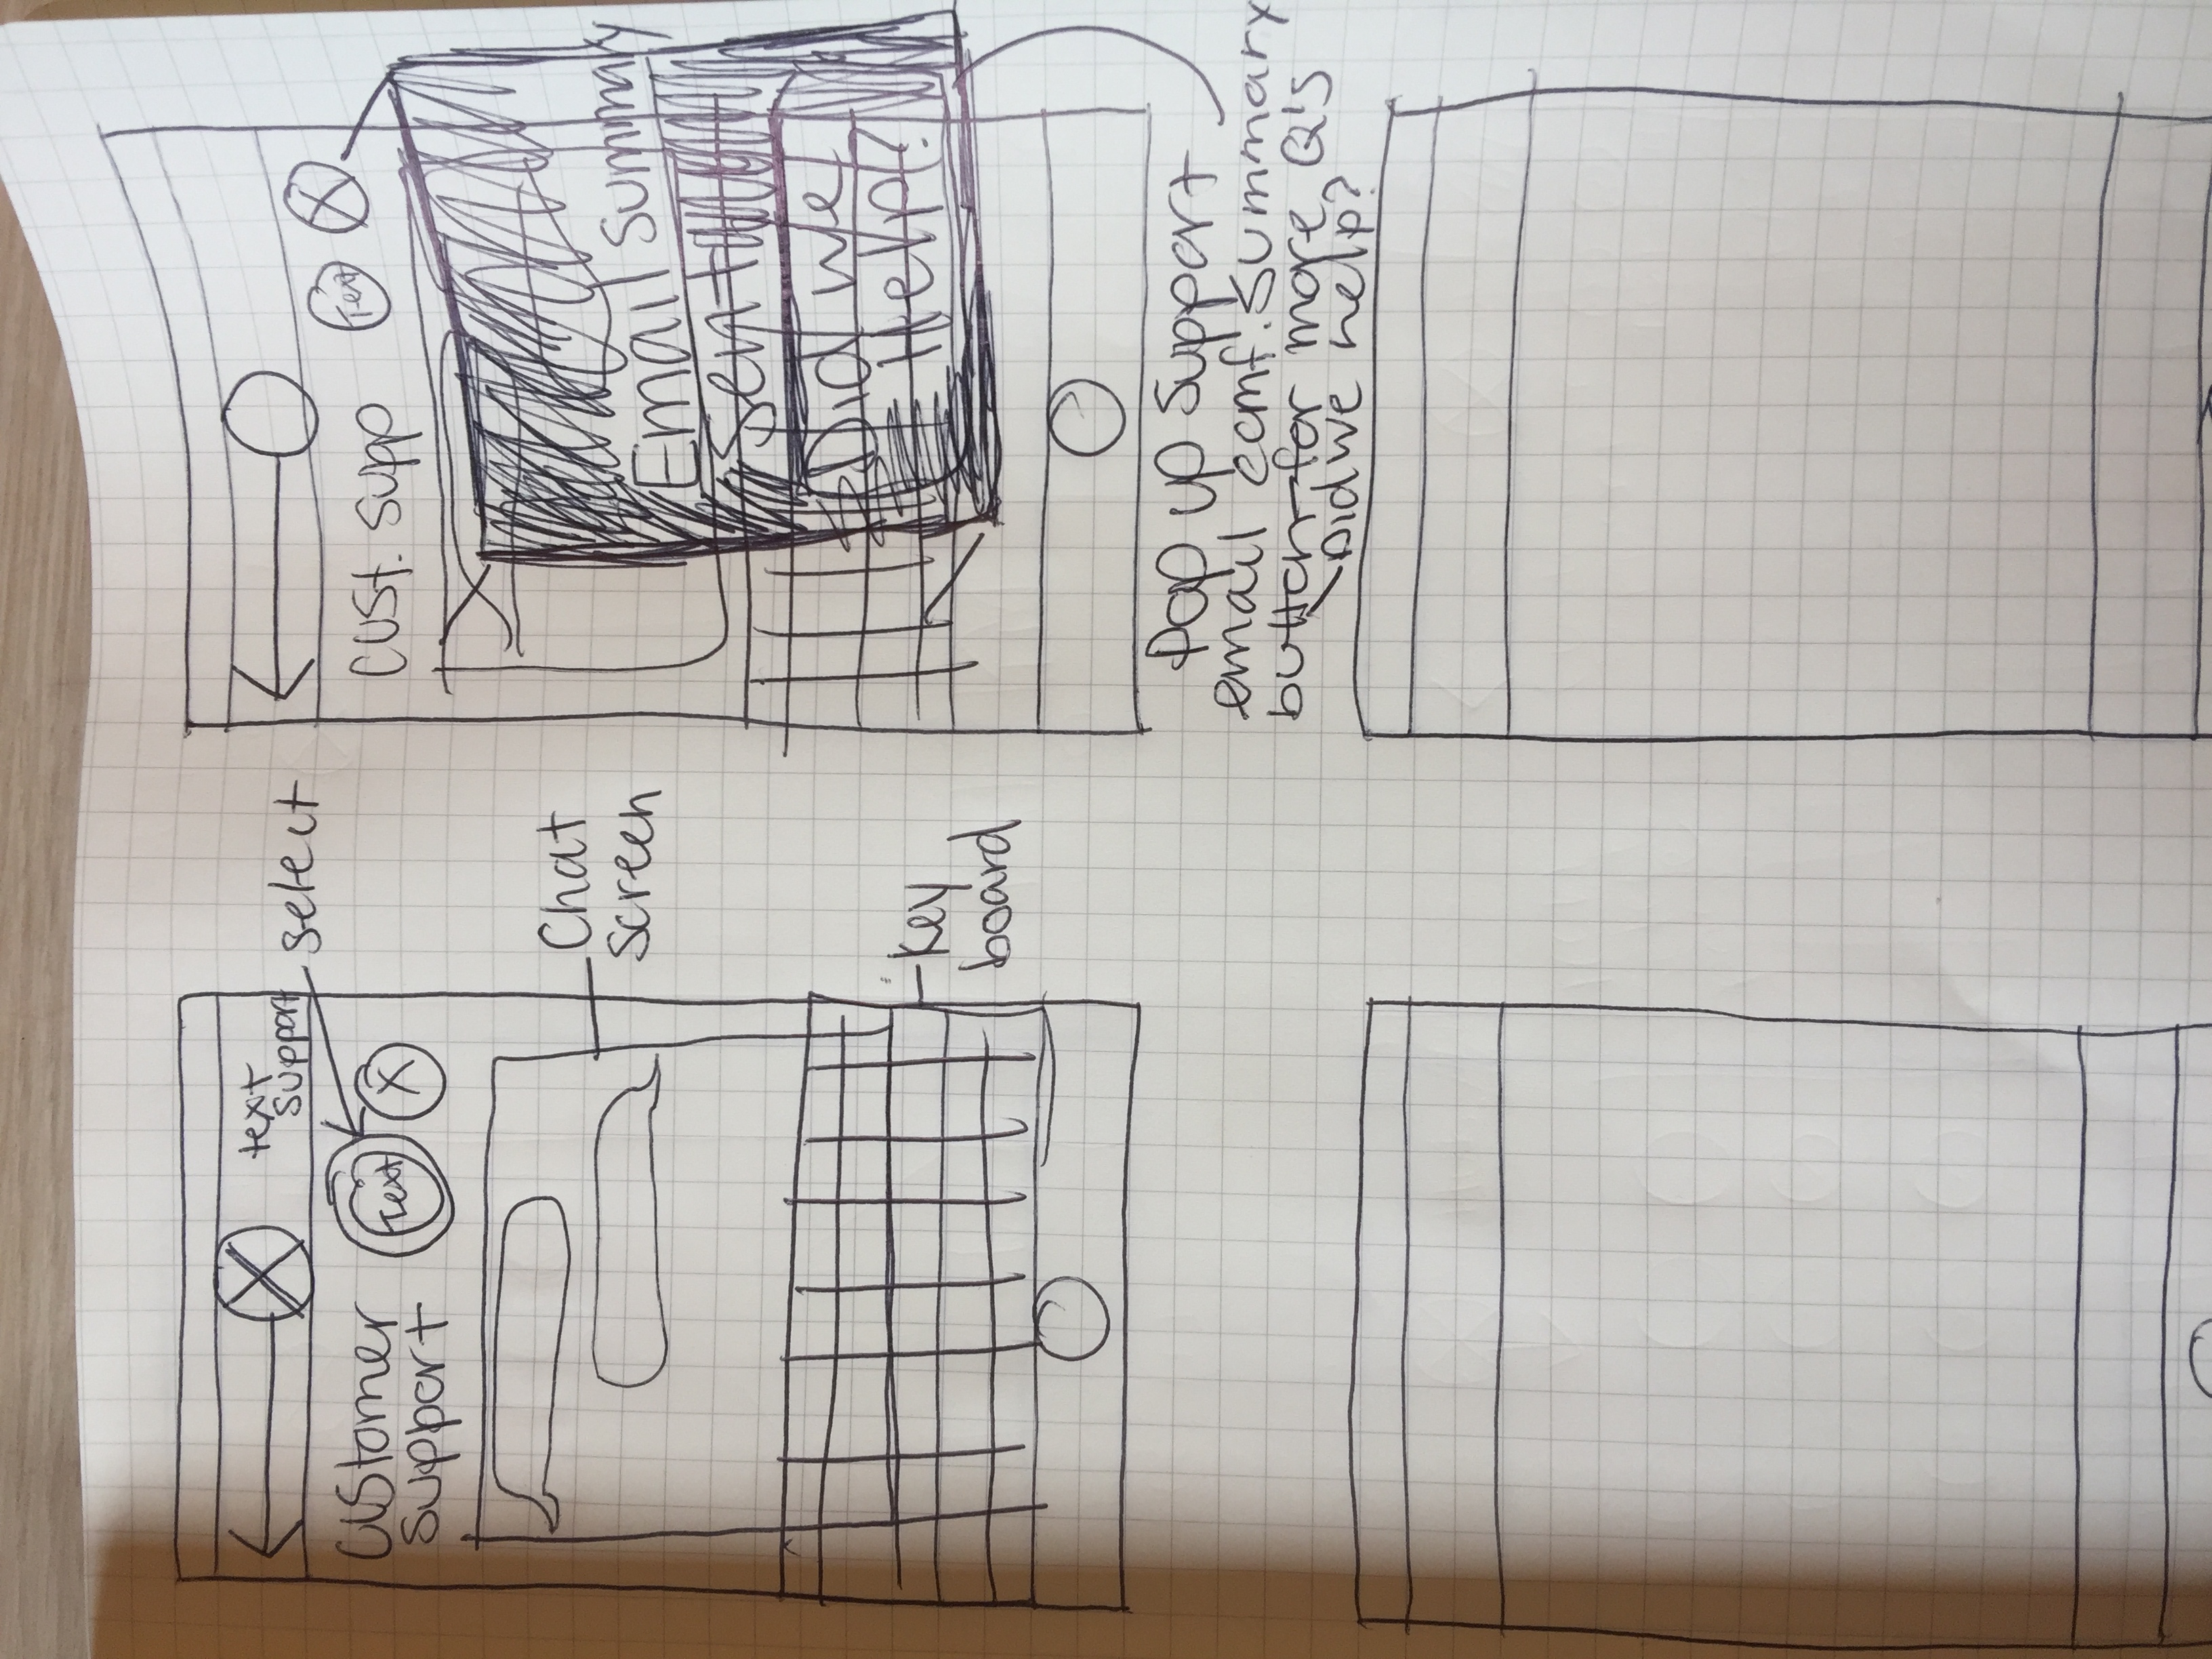 text
support
select
Customer
support
Text
X
Chat
screen
Key
board
Cust. Supp
Text
X
Email Summary
Sent
Did we
Help?
Pop up Support
email comf. Summary
button for more Q's
Did we help?